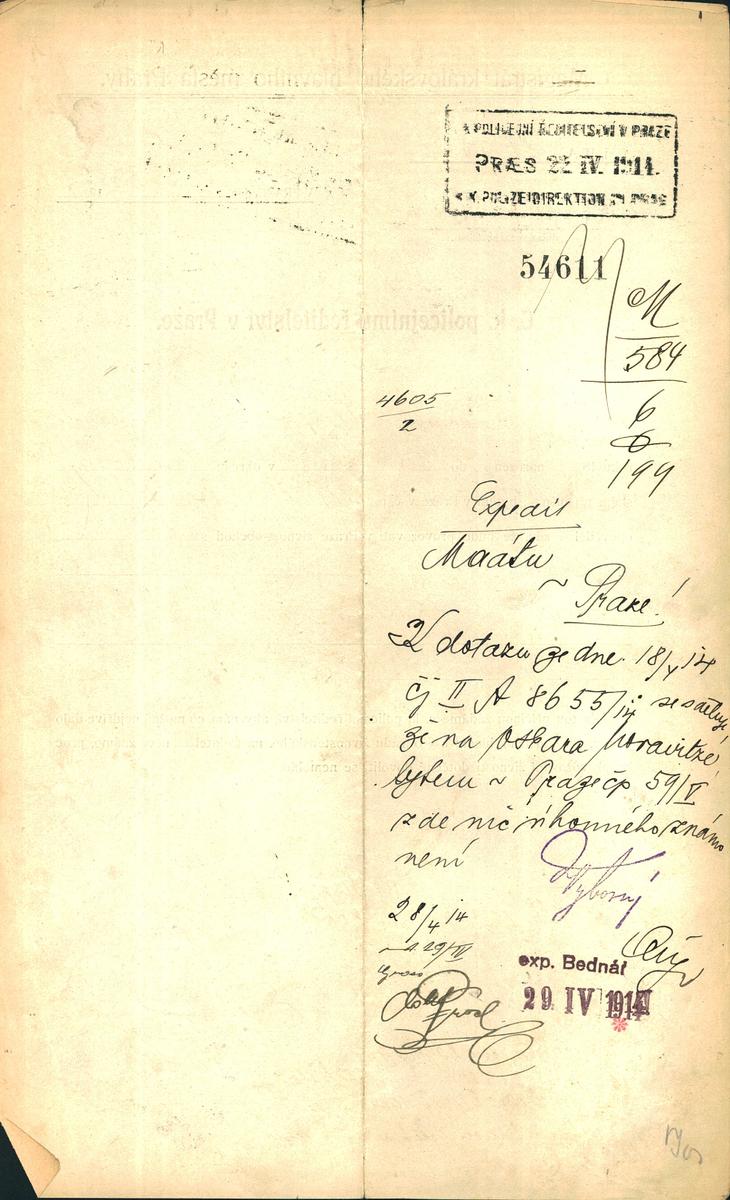 K. POLICEJNÍ ŘEDITELSTVÍ V PRAZE
PRÆS 22 IV. 1914.
K. K. POLIZEIDIREKTION IN PRAG
54611
M
584
6
199
4605
2
Expedit
Maátu
Praze!
K dotazu ze dne 18/ 14
čj II A 8655/14 se sděluje
že na Oskara Moravitze
bytem v Praze čp 59/V
zde nic úhonného známo
není
Výborný
28/4 14
29/IV
exp. Bednář
29 IV 1914